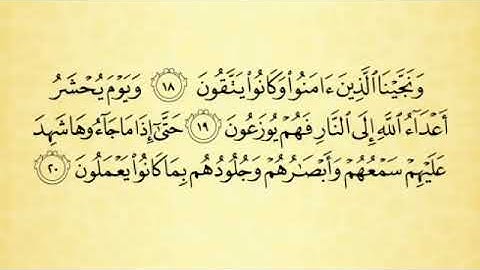 وَنَجَّيْنَا ٱلَّذِينَ ءَامَنُوا۟ وَكَانُوا۟ يَتَّقُونَ ١٨ وَيَوْمَ يُحْشَرُ
أَعْدَآءُ ٱللَّهِ إِلَى ٱلنَّارِ فَهُمْ يُوزَعُونَ ١٩ حَتَّىٰٓ إِذَا مَا جَآءُوهَا شَهِدَ
عَلَيْهِمْ سَمْعُهُمْ وَأَبْصَٰرُهُمْ وَجُلُودُهُم بِمَا كَانُوا۟ يَعْمَلُونَ ٢٠